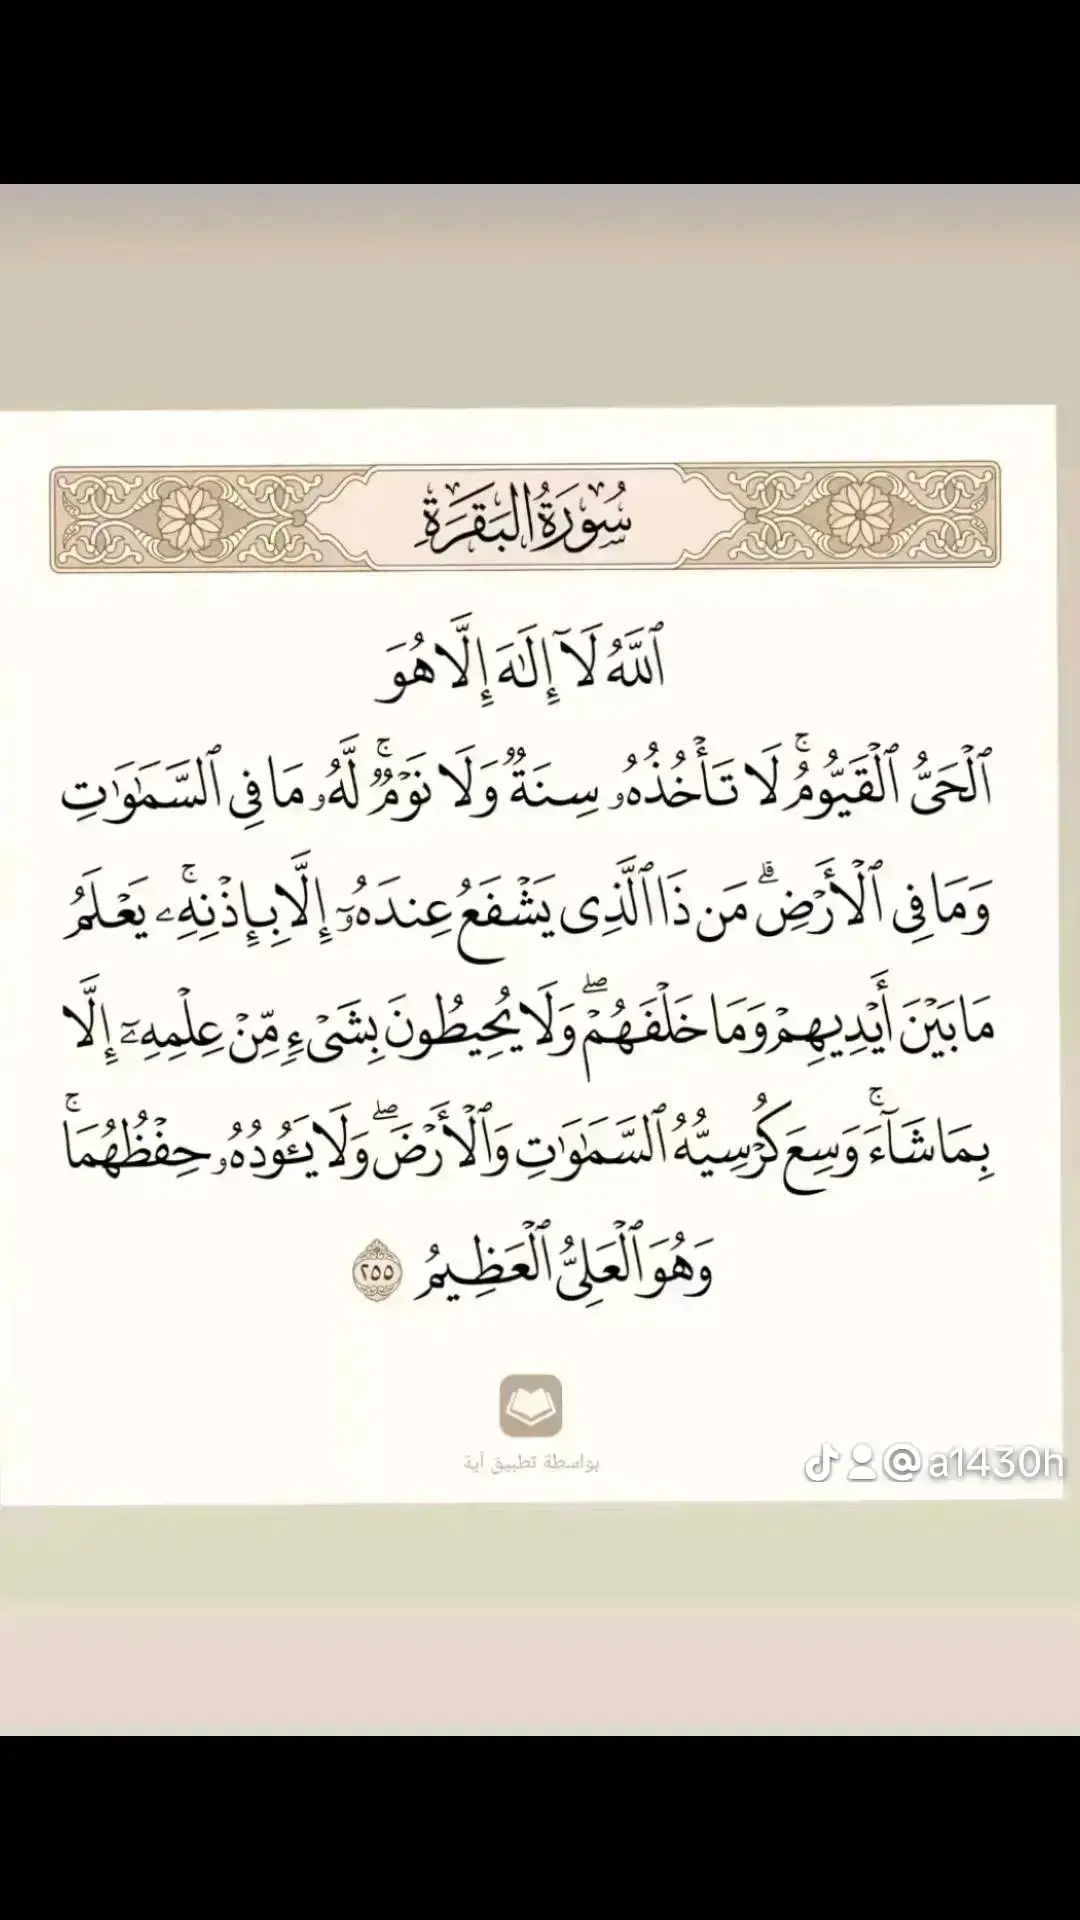 سُورَةُ البَقَرَةِ
ٱللَّهُ لَآ إِلَٰهَ إِلَّا هُوَ
ٱلْحَىُّ ٱلْقَيُّومُ ۚ لَا تَأْخُذُهُۥ سِنَةٌ وَلَا نَوْمٌ ۚ لَّهُۥ مَا فِى ٱلسَّمَٰوَٰتِ
وَمَا فِى ٱلْأَرْضِ ۗ مَن ذَا ٱلَّذِى يَشْفَعُ عِندَهُۥٓ إِلَّا بِإِذْنِهِۦ ۚ يَعْلَمُ
مَا بَيْنَ أَيْدِيهِمْ وَمَا خَلْفَهُمْ ۖ وَلَا يُحِيطُونَ بِشَىْءٍ مِّنْ عِلْمِهِۦٓ إِلَّا
بِمَا شَآءَ ۚ وَسِعَ كُرْسِيُّهُ ٱلسَّمَٰوَٰتِ وَٱلْأَرْضَ ۖ وَلَا يَـُٔودُهُۥ حِفْظُهُمَا ۚ
وَهُوَ ٱلْعَلِىُّ ٱلْعَظِيمُ ٢٥٥
بواسطة تطبيق آية
@a1430h